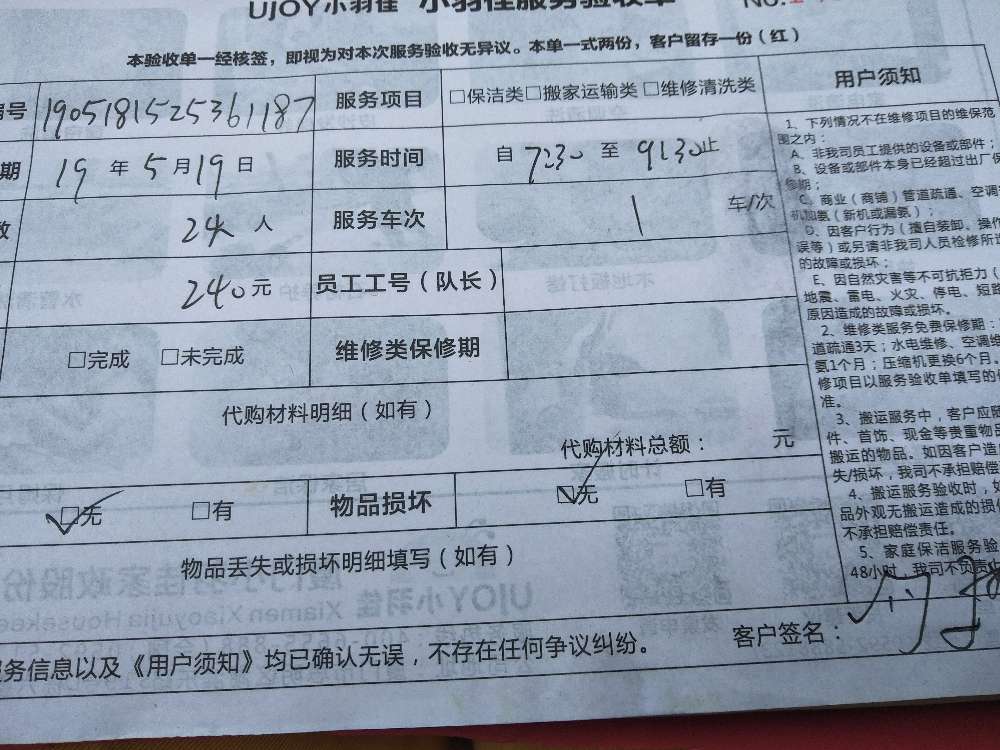 UJOY小羽佳 小羽佳服务验收单 No.
本验收单一经核签，即视为对本次服务验收无异议。本单一式两份，客户留存一份（红）
编号 190518152536​1187 服务项目 □保洁类□搬家运输类□维修清洗类
期 19 年 5 月 19 日 服务时间 自 7:30 至 9:30止
数 人 服务车次 1 车/次
240元 员工工号（队长）
□完成 □未完成 维修类保修期
代购材料明细（如有）
代购材料总额： 元
□无 □有 物品损坏 □无 □有
物品丢失或损坏明细填写（如有）
服务信息以及《用户须知》均已确认无误，不存在任何争议纠纷。 客户签名：
用户须知
1、下列情况不在维修项目的维保范
围之内：
A、非我司员工提供的设备或部件；
B、设备或部件本身已经超过出厂保
修期；
C、商业（商铺）管道疏通、空调
机加氨（新机或漏氨）；
D、因客户行为（擅自装卸、操作
误等）或另请非我司人员检修所造
的故障或损坏；
E、因自然灾害等不可抗拒力（
地震、雷电、火灾、停电、短路
原因造成的故障或损坏。
2、维修类服务免费保修期：
道疏通3天；水电维修、空调维
氨1个月；压缩机更换6个月。
修项目以服务验收单填写的
准。
3、搬运服务中，客户应
件、首饰、现金等贵重物品
搬运的物品。如因客户造
失/损坏，我司不承担赔偿
4、搬运服务验收时，如
品外观无搬运造成的损
不承担赔偿责任。
5、家庭保洁服务验
48小时，我司不负责